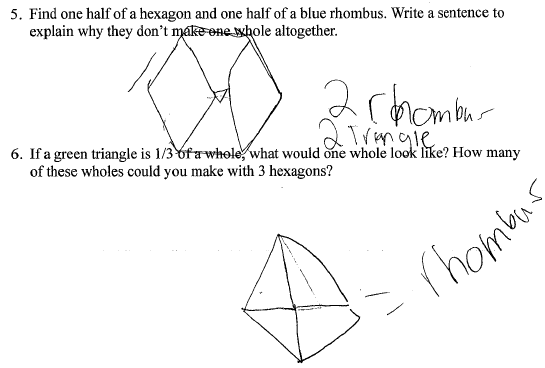 5. Find one half of a hexagon and one half of a blue rhombus. Write a sentence to
explain why they don't make one whole altogether.
2 rhombus
2 Triangle
6. If a green triangle is 1/3 of a whole, what would one whole look like? How many
of these wholes could you make with 3 hexagons?
= rhombus